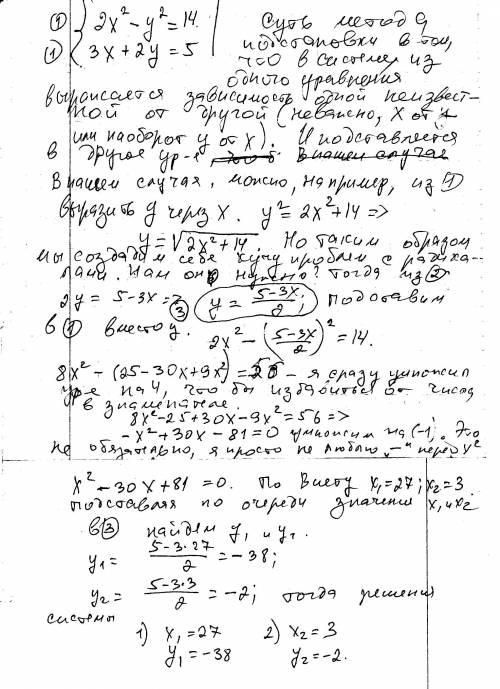 ① { 2x² - y² = 14
① { 3x + 2y = 5
Суть метода
подстановки в том,
что в системе из
одного уравнения
выражается зависимость одной неизвест-
ной от другой (неважно, x от y
или наоборот y от x). И подставляется
в другое ур-е
В нашем случае, можно, например, из ①
выразить y через x. y² = 2x² + 14 =>
y = √2x² + 14. Но таким образом
мы создадим себе кучу проблем с радика-
лами. Нам оно нужно? Тогда из ②
2y = 5 - 3x => ③ y = (5-3x)/2; подставим
в ① вместо y. 2x² - ((5-3x)/2)² = 14.
8x² - (25 - 30x + 9x²) = 56 - я сразу умножил
ур-е на 4, что бы избавиться от числа
в знаменателе.
8x² - 25 + 30x - 9x² = 56 =>
-x² + 30x - 81 = 0 умножим на (-1). Это
не обязательно, я просто не люблю „-“ перед x²
x² - 30x + 81 = 0. По Виету x₁ = 27; x₂ = 3
подставляя по очереди значения x₁ и x₂
в ③ найдем y₁ и y₂.
y₁ = (5-3·27)/2 = -38;
y₂ = (5-3·3)/2 = -2; тогда решения
системы
1) x₁ = 27 2) x₂ = 3
y₁ = -38 y₂ = -2.